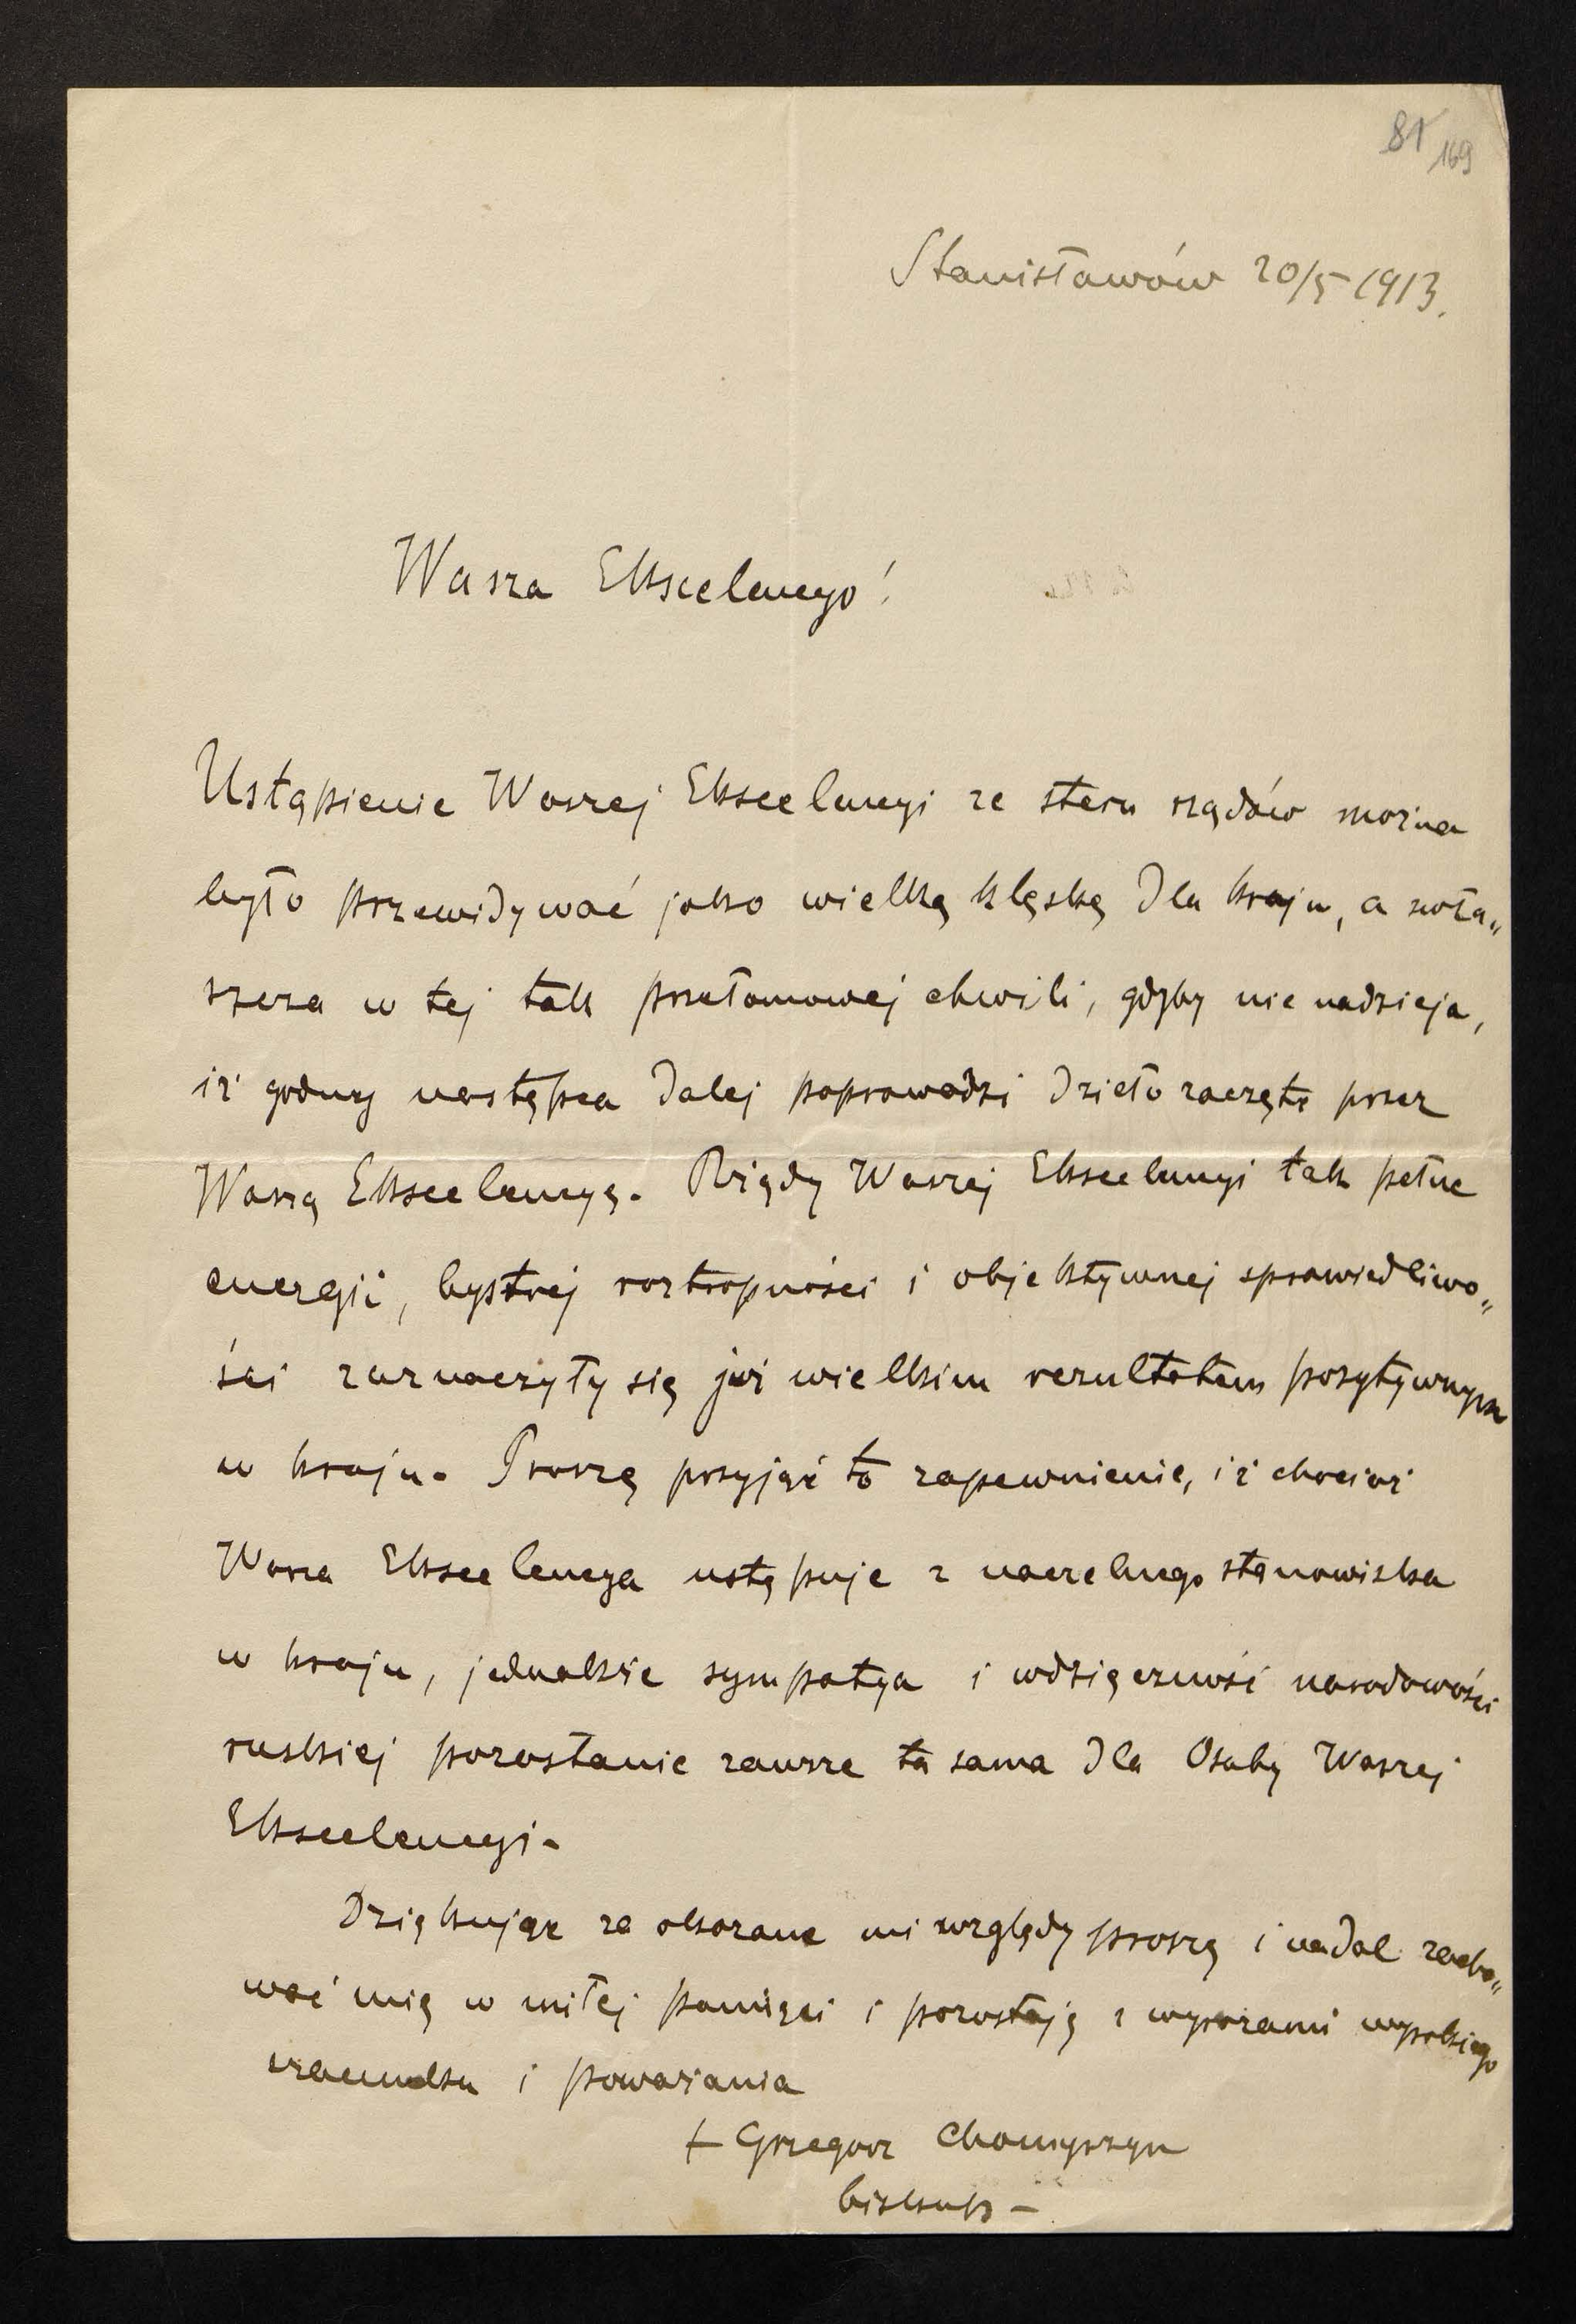 81
169
Stanisławów 20/5 1913.
Wasza Ekscelencyo!
Ustąpienie Waszej Ekscelencyi ze steru rządów można
było przewidywać jako wielką klęskę dla kraju, a zwła„
szcza w tej tak przełomowej chwili, gdyby nie nadzieja,
iż godny następca dalej poprowadzi dzieło zaczęte przez
Waszą Ekscelencyę. Rządy Waszej Ekscelencyi tak pełne
energii, bystrej roztropności i objektywnej sprawiedliwo„
ści zaznaczyły się już wielkim rezultatem pozytywnym
w kraju. Proszę przyjąć to zapewnienie, iż chociaż
Wasza Ekscelencya ustępuje z naczelnego stanowiska
w kraju, jednakże sympatya i wdzięczność narodowości
ruskiej pozostanie zawsze ta sama dla Osoby Waszej
Ekscelencyi.
Dziękując za okazane mi względy proszę i nadal zacho„
wać mię w miłej pamięci i pozostaję z wyrazami wysokiego
szacunku i poważania
+ Grzegorz Chomyszyn
biskup –